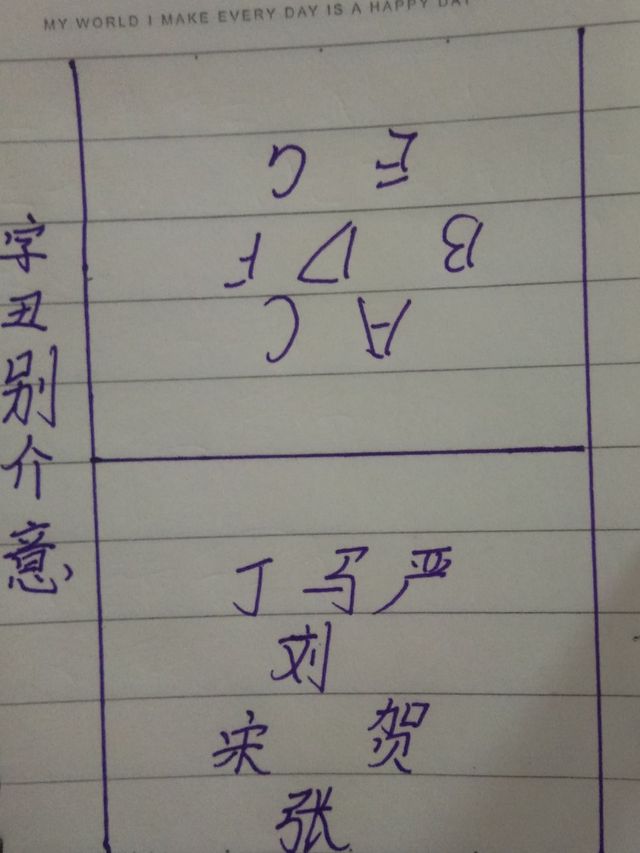 MY WORLD I MAKE EVERY DAY IS A HAPPY DAY
字丑别介意
A C
B D F
E G
丁 马 严
刘
宋 贺
张